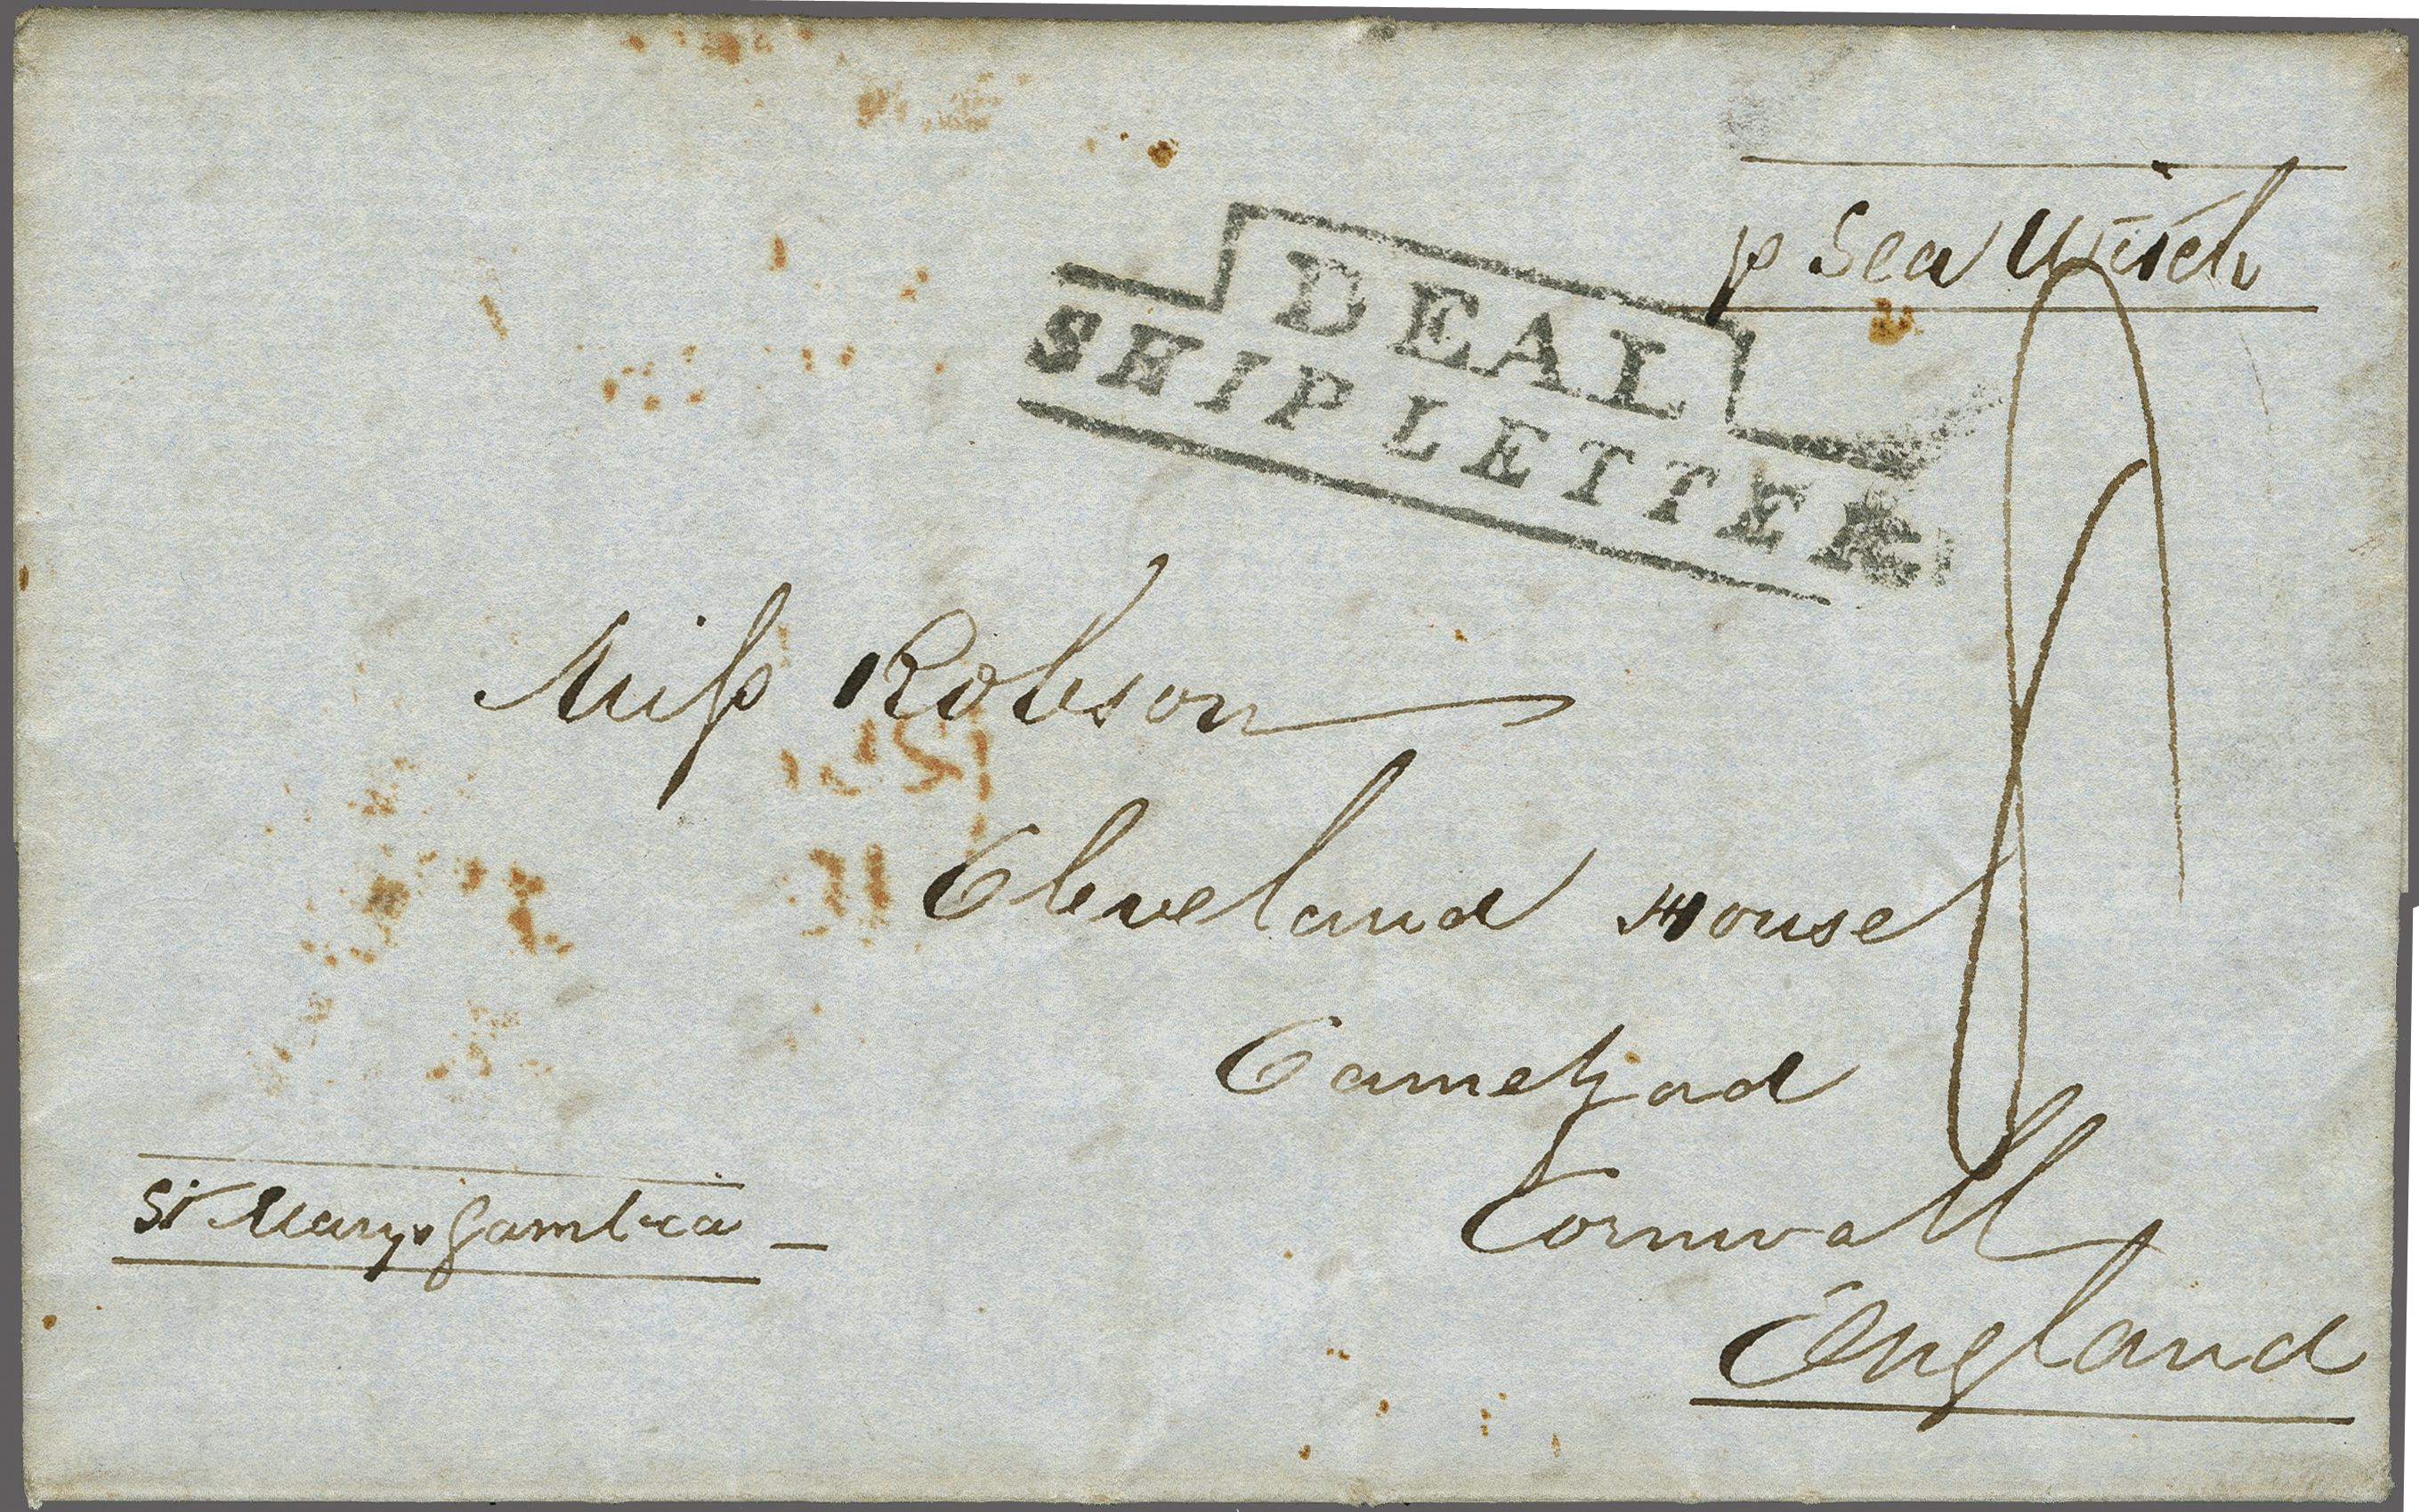 p Sea Witch
DEAL
SHIP LETTER
Miſs Robson
Cleveland House
Camelford
Cornwall
England
St Marys Gambia